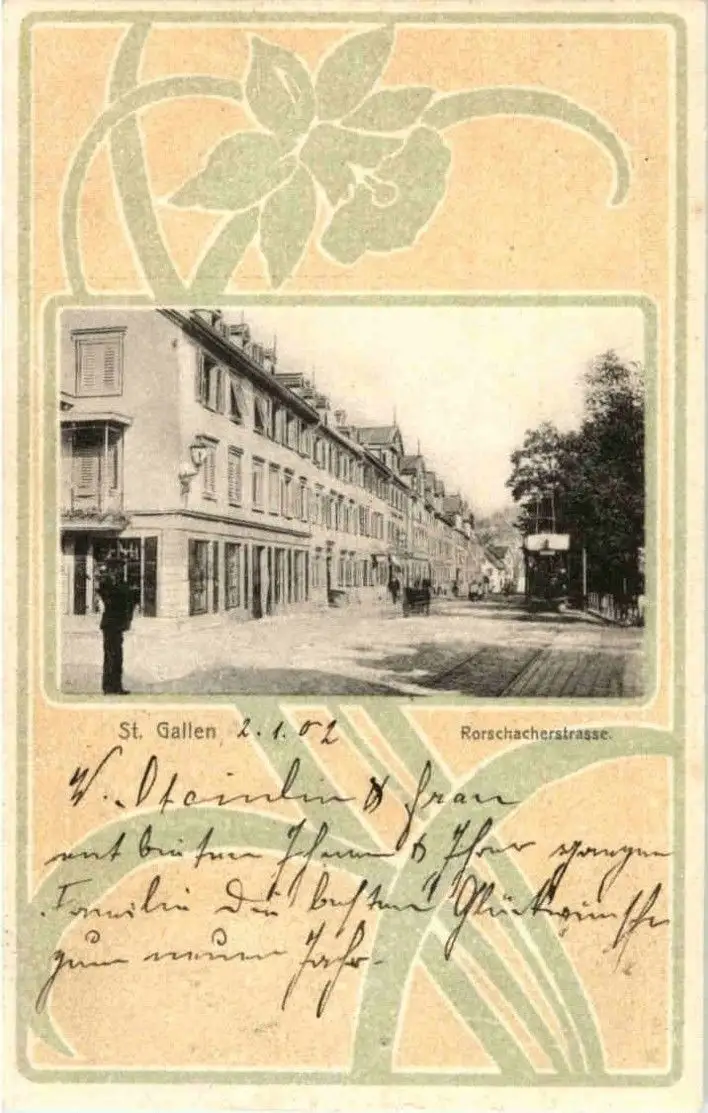 St. Gallen 2.1.02
Rorschacherstrasse.
W. & Frau
Ihnen & Ihrer ganzen
Familie die besten Glückwünsche
zum neuen Jahr.